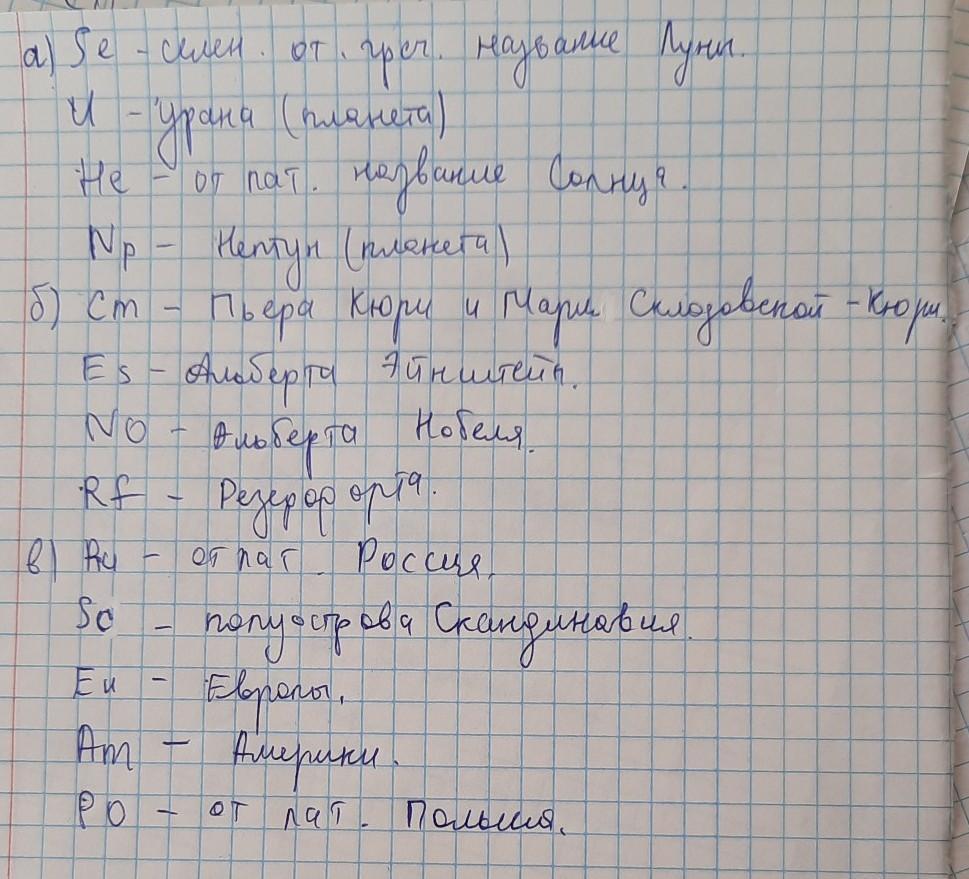 а) Se - селен. от. греч. название Луны.
U - Урана (планета)
He - от лат. название Солнця.
Np - Нептун (планета)
б) Cm - Пьера Кюри и Мари Склодовской - Кюри.
Es - Альберта Эйнштейн.
NO - Альберта Нобеля.
Rf - Резерфорта.
в) Ru - от лат. Россия.
Sc - полуострова Скандинавия.
Eu - Европы.
Am - Америки.
PO - от лат. Польшия.